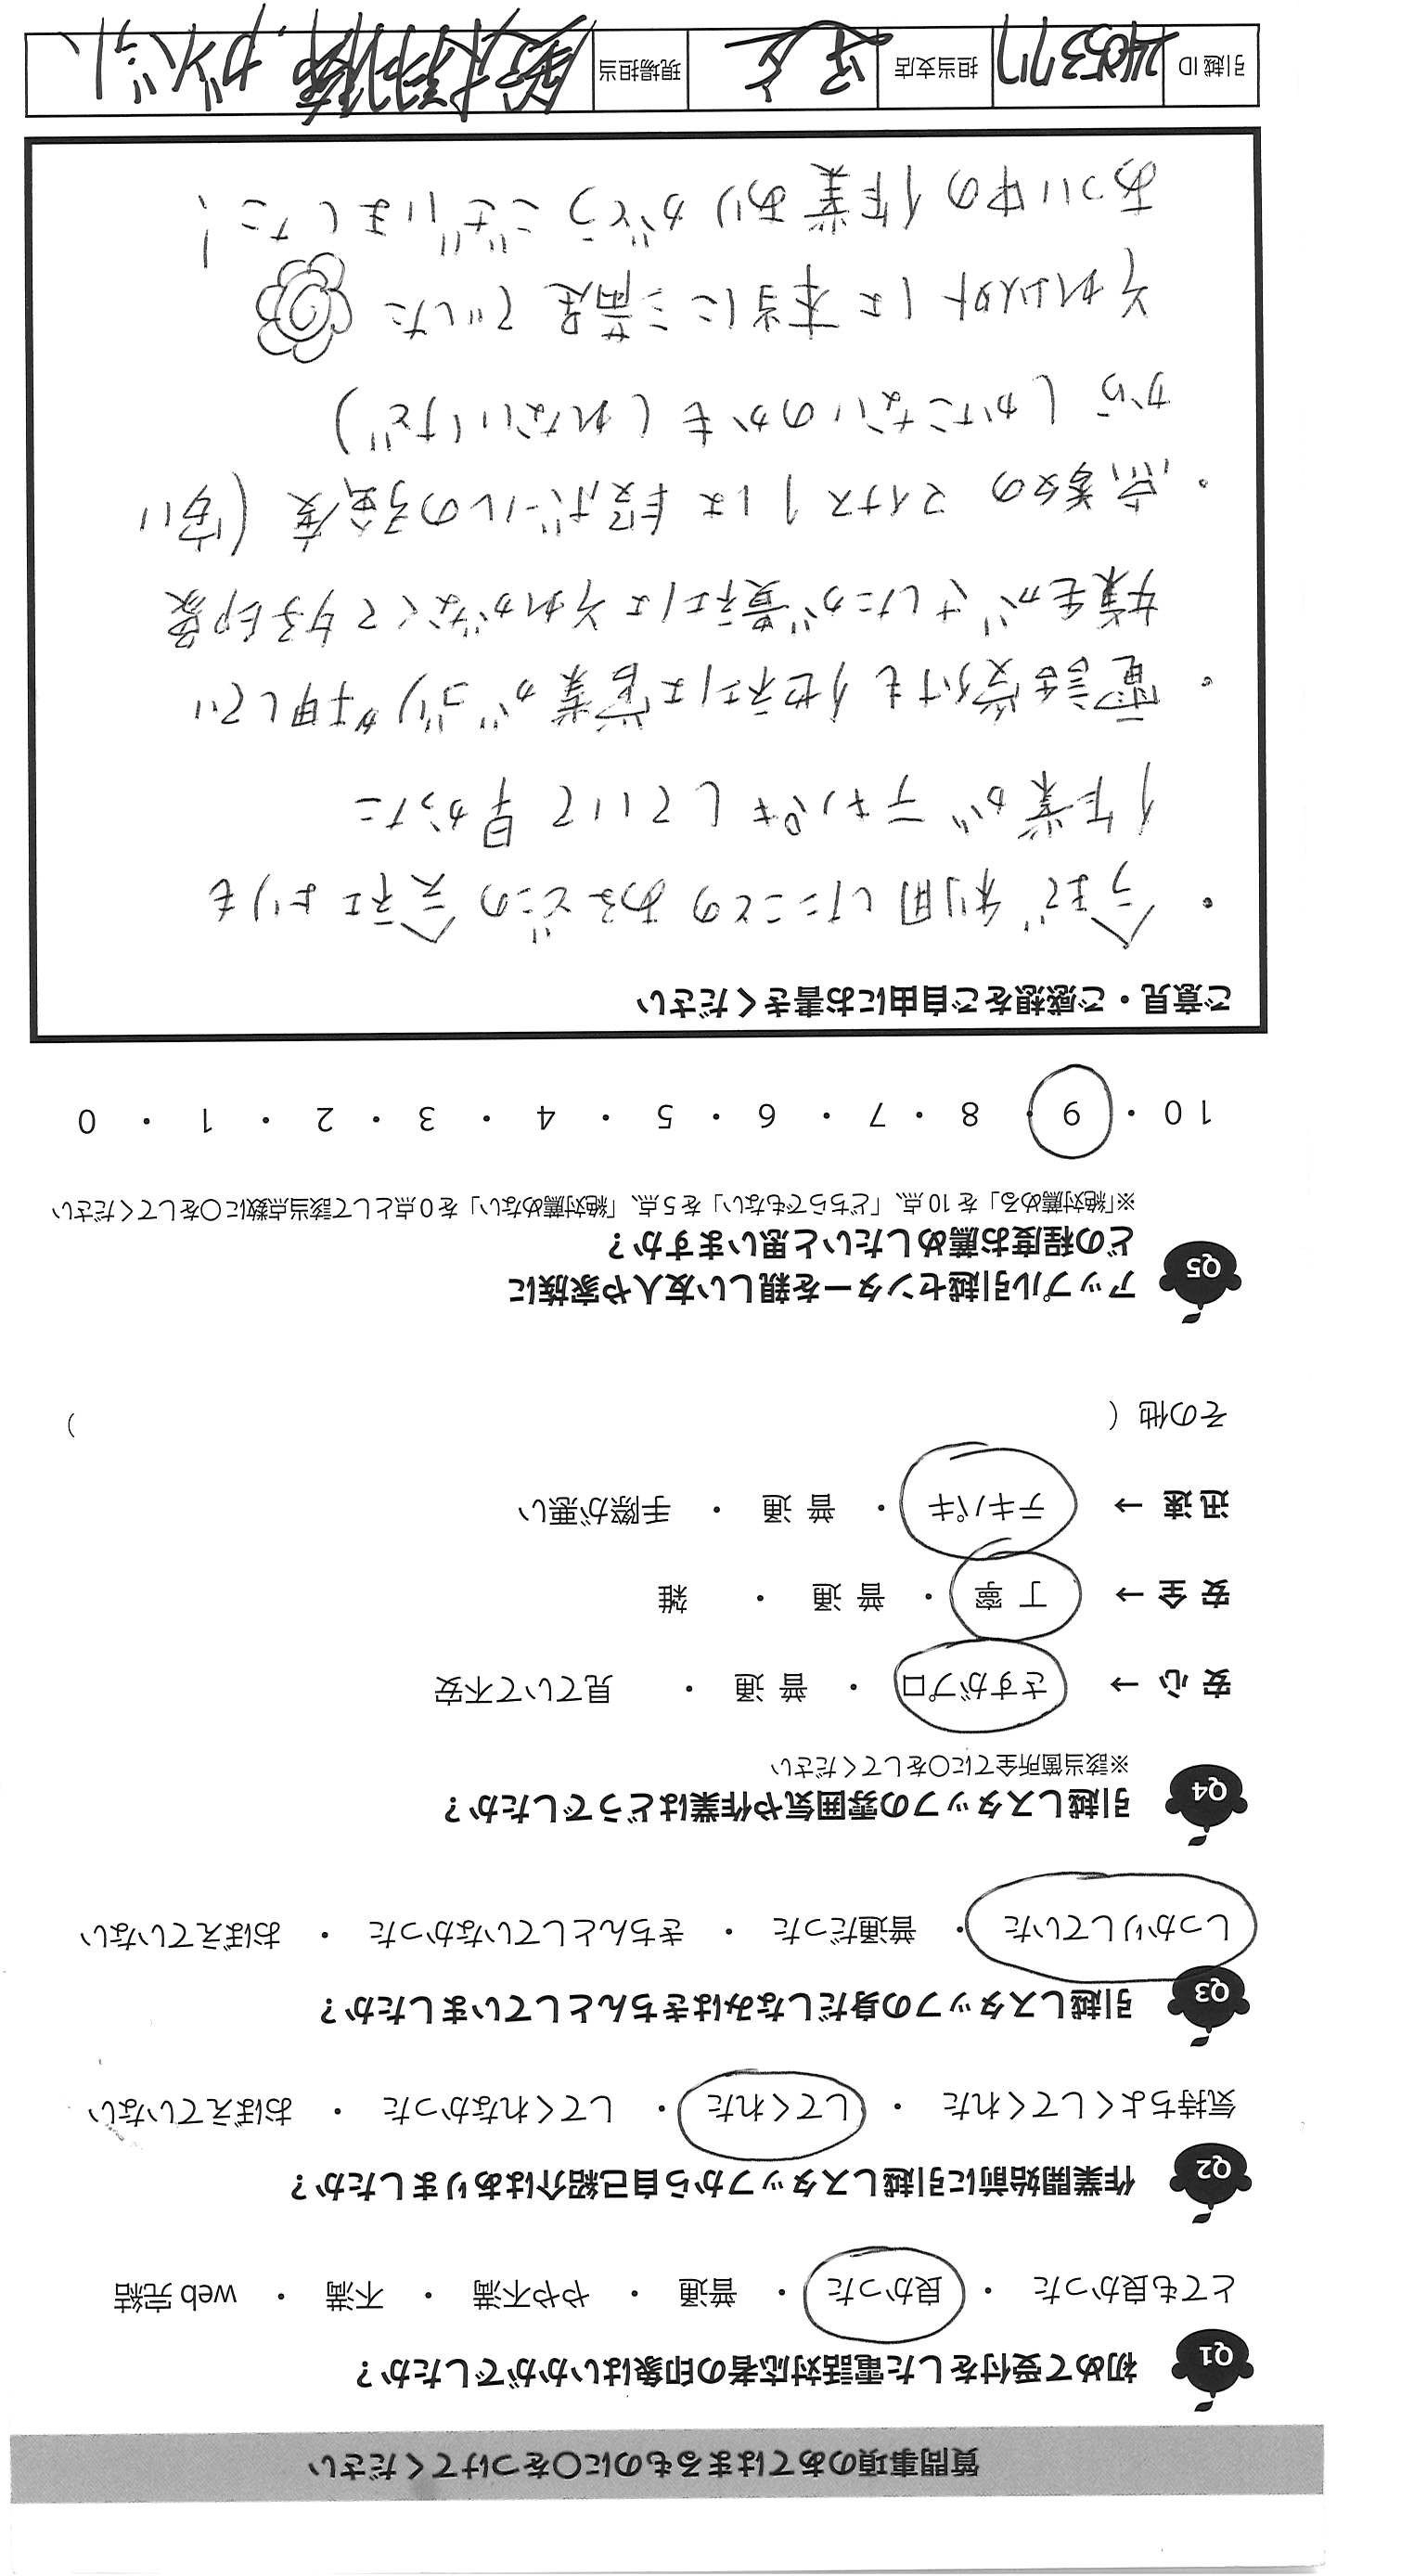 質問事項のあてはまるものに○をつけてください
Q1 初めて受付をした電話対応者の印象はいかがでしたか？
とても良かった ・ 良かった ・ 普通 ・ やや不満 ・ 不満 ・ web完結
Q2 作業開始前に引越しスタッフから自己紹介はありましたか？
気持ちよくしてくれた ・ してくれた ・ してくれなかった ・ おぼえていない
Q3 引越しスタッフの身だしなみはきちんとしていましたか？
しっかりしていた ・ 普通だった ・ きちんとしていなかった ・ おぼえていない
Q4 引越しスタッフの雰囲気や作業はどうでしたか？
※該当箇所全てに○をしてください
安心 → さすがプロ ・ 普通 ・ 見ていて不安
安全 → 丁寧 ・ 普通 ・ 雑
迅速 → テキパキ ・ 普通 ・ 手際が悪い
その他（ ）
Q5 アップル引越センターを親しい友人や家族に
どの程度お薦めしたいと思いますか？
※「絶対薦める」を10点、「どちらでもない」を5点、「絶対薦めない」を0点として該当点数に○をしてください
10 ・ 9 ・ 8 ・ 7 ・ 6 ・ 5 ・ 4 ・ 3 ・ 2 ・ 1 ・ 0
ご意見・ご感想をご自由にお書きください
・今まで利用したことのあるどの会社よりも
作業がテキパキしていて早かった
・電話受付も他社は営業がゴリ押してい
嫌気がさしたが貴社はそれがなくて好印象
・点数のマイナス1は段ボールの強度（安い
からしかたないのかもしれないけど）
それ以外は本当に満足でした
あつい中の作業ありがとうございました！
引越ID 担当支店 現場担当